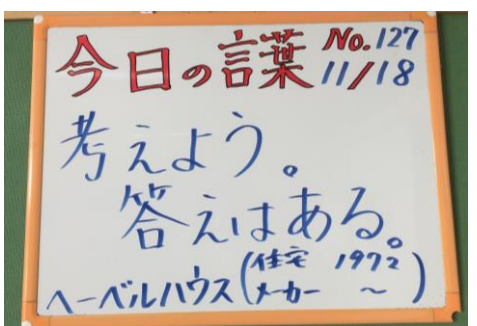 今日の言葉 No.127
11/18
考えよう。
答えはある。
ヘーベルハウス(住宅メーカー 1972~)